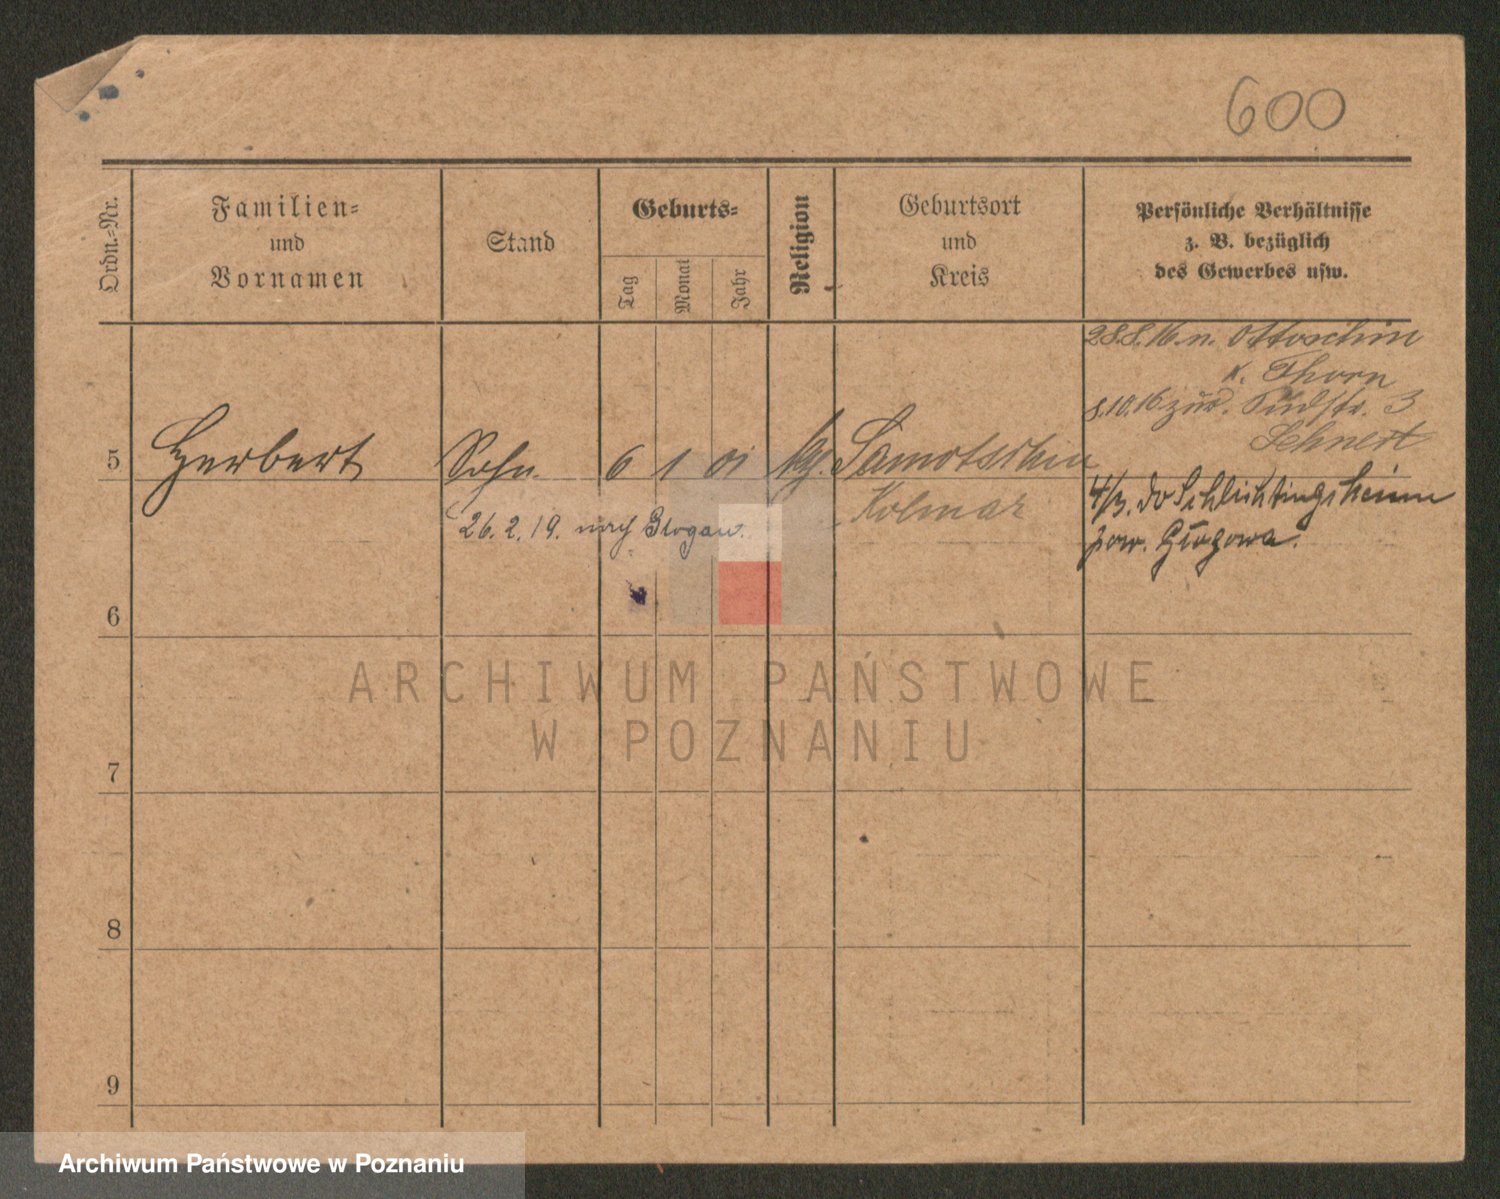 600
Ordn.-Nr.
Familien-
und
Vornamen
Stand
Geburts-
Tag
Monat
Jahr
Religion
Geburtsort
und
Kreis
Persönliche Verhältnisse
z. B. bezüglich
des Gewerbes usw.
28.8.16. n. Ottoschin
K. Thorn
8.10.16 zur. Südstr. 3
Sehnert
5 Herbert Sohn 6 1 01 Samotschin
Kolmar
26.2.19. nach Glogau.
4/3. do Schlichtingsheim
pow. Głogowa.
6
7
8
9
ARCHIWUM PAŃSTWOWE
W POZNANIU
Archiwum Państwowe w Poznaniu